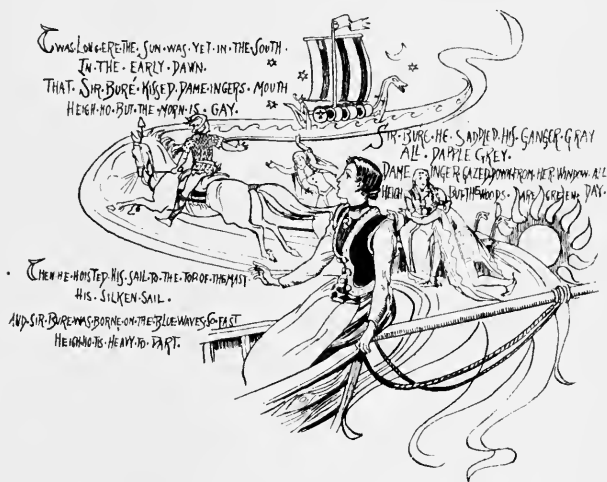 TWAS·LONG·ERE·THE·SUN·WAS·YET·IN·THE·SOUTH·
IN·THE·EARLY·DAWN.
THAT·SIR·BURÉ·KISSED·DAME·INGERS·MOUTH
HEIGH·HO·BUT·THE·MORN·IS·GAY.
SIR·BURE·HE·SADDLED·HIS·GANGER·GRAY
ALL·DAPPLE·GREY.
DAME INGER·GAZED·DOWN·FROM·HER·WINDOW·ALL DAY
HEIGH BUT·THE·WOODS· ·GREEN·
THEN·HE·HOISTED·HIS·SAIL·TO·THE·TOP·OF·THE·MAST
HIS·SILKEN·SAIL·
AND·SIR·BURE·WAS·BORNE·ON·THE·BLUE·WAVES·SO·FAST
HEIGH·HO·TIS·HEAVY·TO·PART.